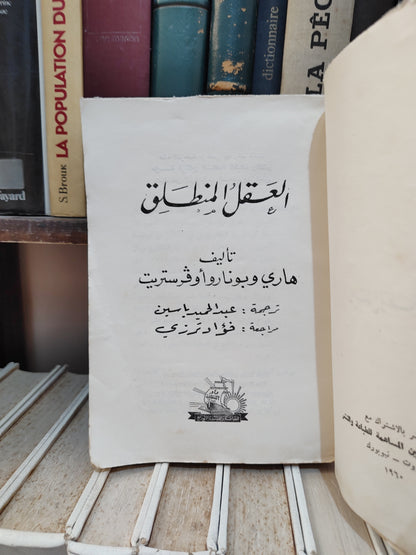 LA POPULATION DU
S. Brouk
ayard
dictionnaire
LA PÊC
العقل المنطلق
تأليف
هاري وبونارو أوڤرستريت
ترجمة : عبد الحميد ياسين
مراجعة : فؤاد ترزي
بالاشتراك مع
المساهمة للطباعة والنشر
وت - نيويورك
١٩٦٠